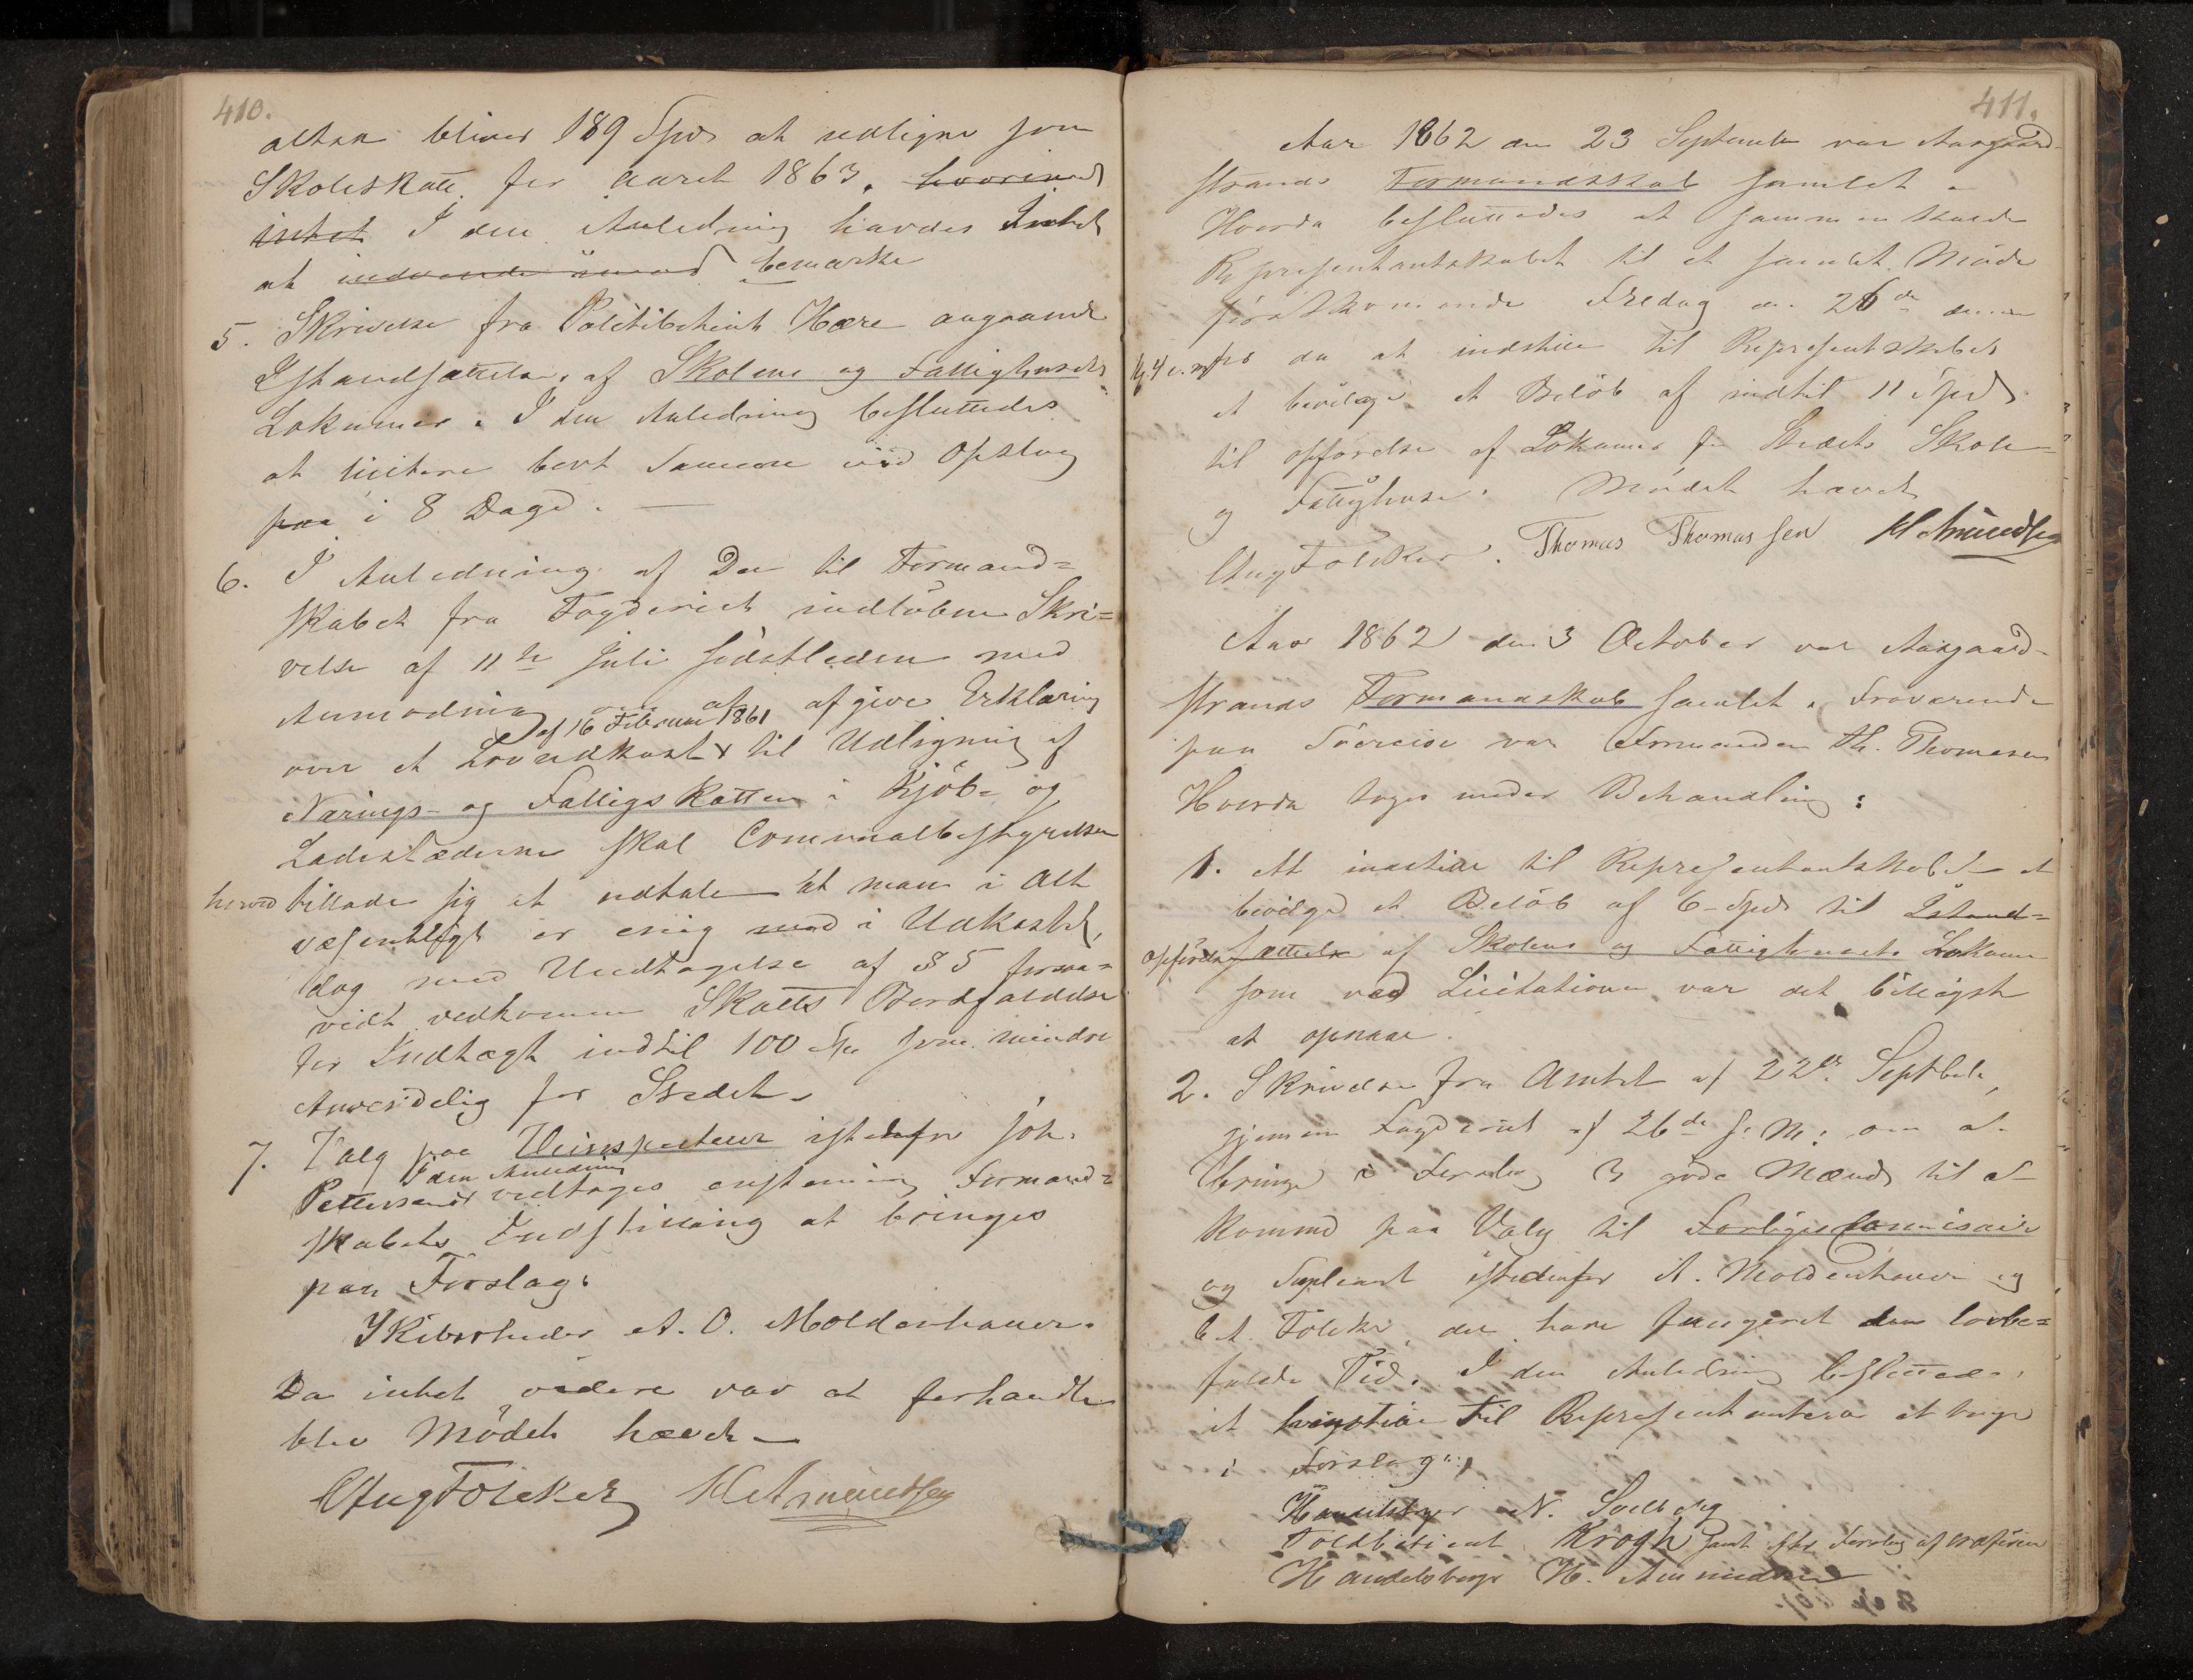 410.
altsaa bliver 189 Spd at udligne som
Skoleskatt for Aaret 1863. hvorimod
intet I den Anledning havdes Intet
at indvende imod bemærke
5. Skrivelse fra Politibetient Hære angaaende
Istandsættelse af Skolens og Fattighusets
Lokumer. I den Anledning besluttedes
at licitere bort Samme ved Opslag
paa i 8 Dage.
6. I Anledning af Den til Formand=
skabet fra Fogderiet indløbne Skri=
velse af 11te Juli sidstleden med
Anmodning om at afgive Erklæring
af 16 Februar 1861
over et Lovudkast til Udligning af
Nærings- og Fattigskatten i Kjöb- og
Ladestæderne skal Communalbestyrelsen
herved tillade sig at udtale at man i Alt
væsentligt er enig med i Udkastet,
dog med Undtagelse af § 5 forsaa=
vidt vedkommer Skatts Bortfaldelse
for Indtægt indtil 100 Spd som mindre
Anvendelig for Stedet.
7. Valg paa Veiinspecteur istedenfor Joh.
I den Anledning
Pettersen vedtoges enstemmig Formand=
skabets Indstilling at bringes
paa Forslag:
Skibsrheder A. O. Moldenhauer.
Da intet videre var at forhandle
blev Mödet hævet
C Aug Fölcker H Amundsen
411.
Aar 1862 den 23 September var Aasgaard-
strands Formandsskab samlet.
Hvorda besluttedes at sammenkalde
Representantskabet til et samlet Möde
förstkommende Fredag den 26de dennes
Kl 4 e. m. for da at indstille til Representskabet
at bevilge et Belöb af indtil 11 Spd
til opförelse af Lokumer for Stedets Skole
og Fattighuse. Mödet hævet
C Aug Fölcker. Thomas Thomassen H Amundsen
Aar 1862 den 3 October var Aasgaard-
strands Formandskab samlet. Fraværende
paa Söereise var Formanden Th. Thomesen
Hvorda toges under Behandling:
1. At indstille til Representantskabet at
bevilge et Belöb af 6 Spd til Istand=
opförelse sættelse af Skolens og Fattighusets Lokumer
som ved Licitationen var det billigste
at opnaae.
2. Skrivelse fra Amtet af 22de Septbr
gjennem Fogderiet af 26de s: M: om at
bringe i Forslag 3 gode Mænd til at
komme paa Valg til Forligescommisair
og Supleant istedenfor A. Moldenhauer og
C A. Fölcker, der have fungeret den lovbe=
falede Tid. I den Anledning besluttedes
at indstille til Representanterne at bringe
i Forslag:
Handelsborger N. Solberg
Toldbetient Krogh samt efter Forslag af
Handelsborger H. Amundsen